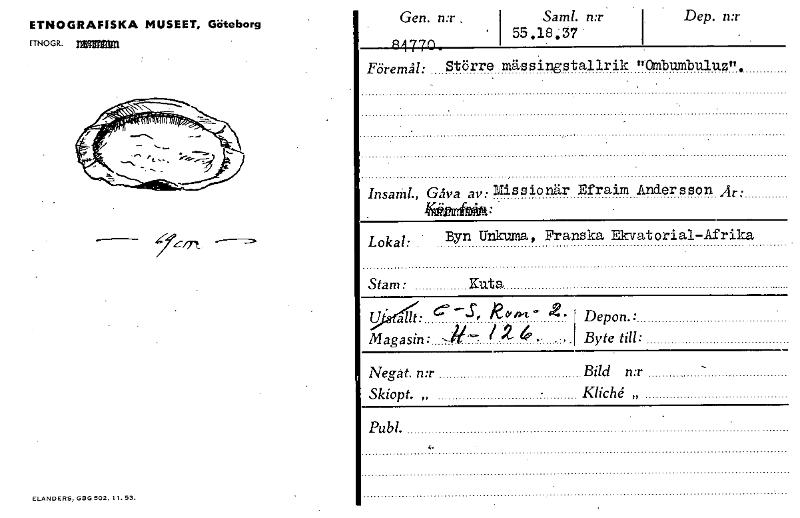 ETNOGRAFISKA MUSEET, Göteborg
ETNOGR.
Gen. n:r
Saml. n:r
Dep. n:r
84770.
55.18.37
Föremål: Större mässingstallrik "Ombumbuluz".
Insaml., Gåva av: Missionär Efraim Andersson År:
Köp från:
Lokal: Byn Unkuma, Franska Ekvatorial-Afrika
Stam: Kuta
Utställt: C-S, Rum- 2. Depon.:
Magasin: H-126. Byte till:
Negat. n:r Bild n:r
Skiopt. „ Kliché „
Publ.
49 cm
ELANDERS, GBG 502. 11. 53.